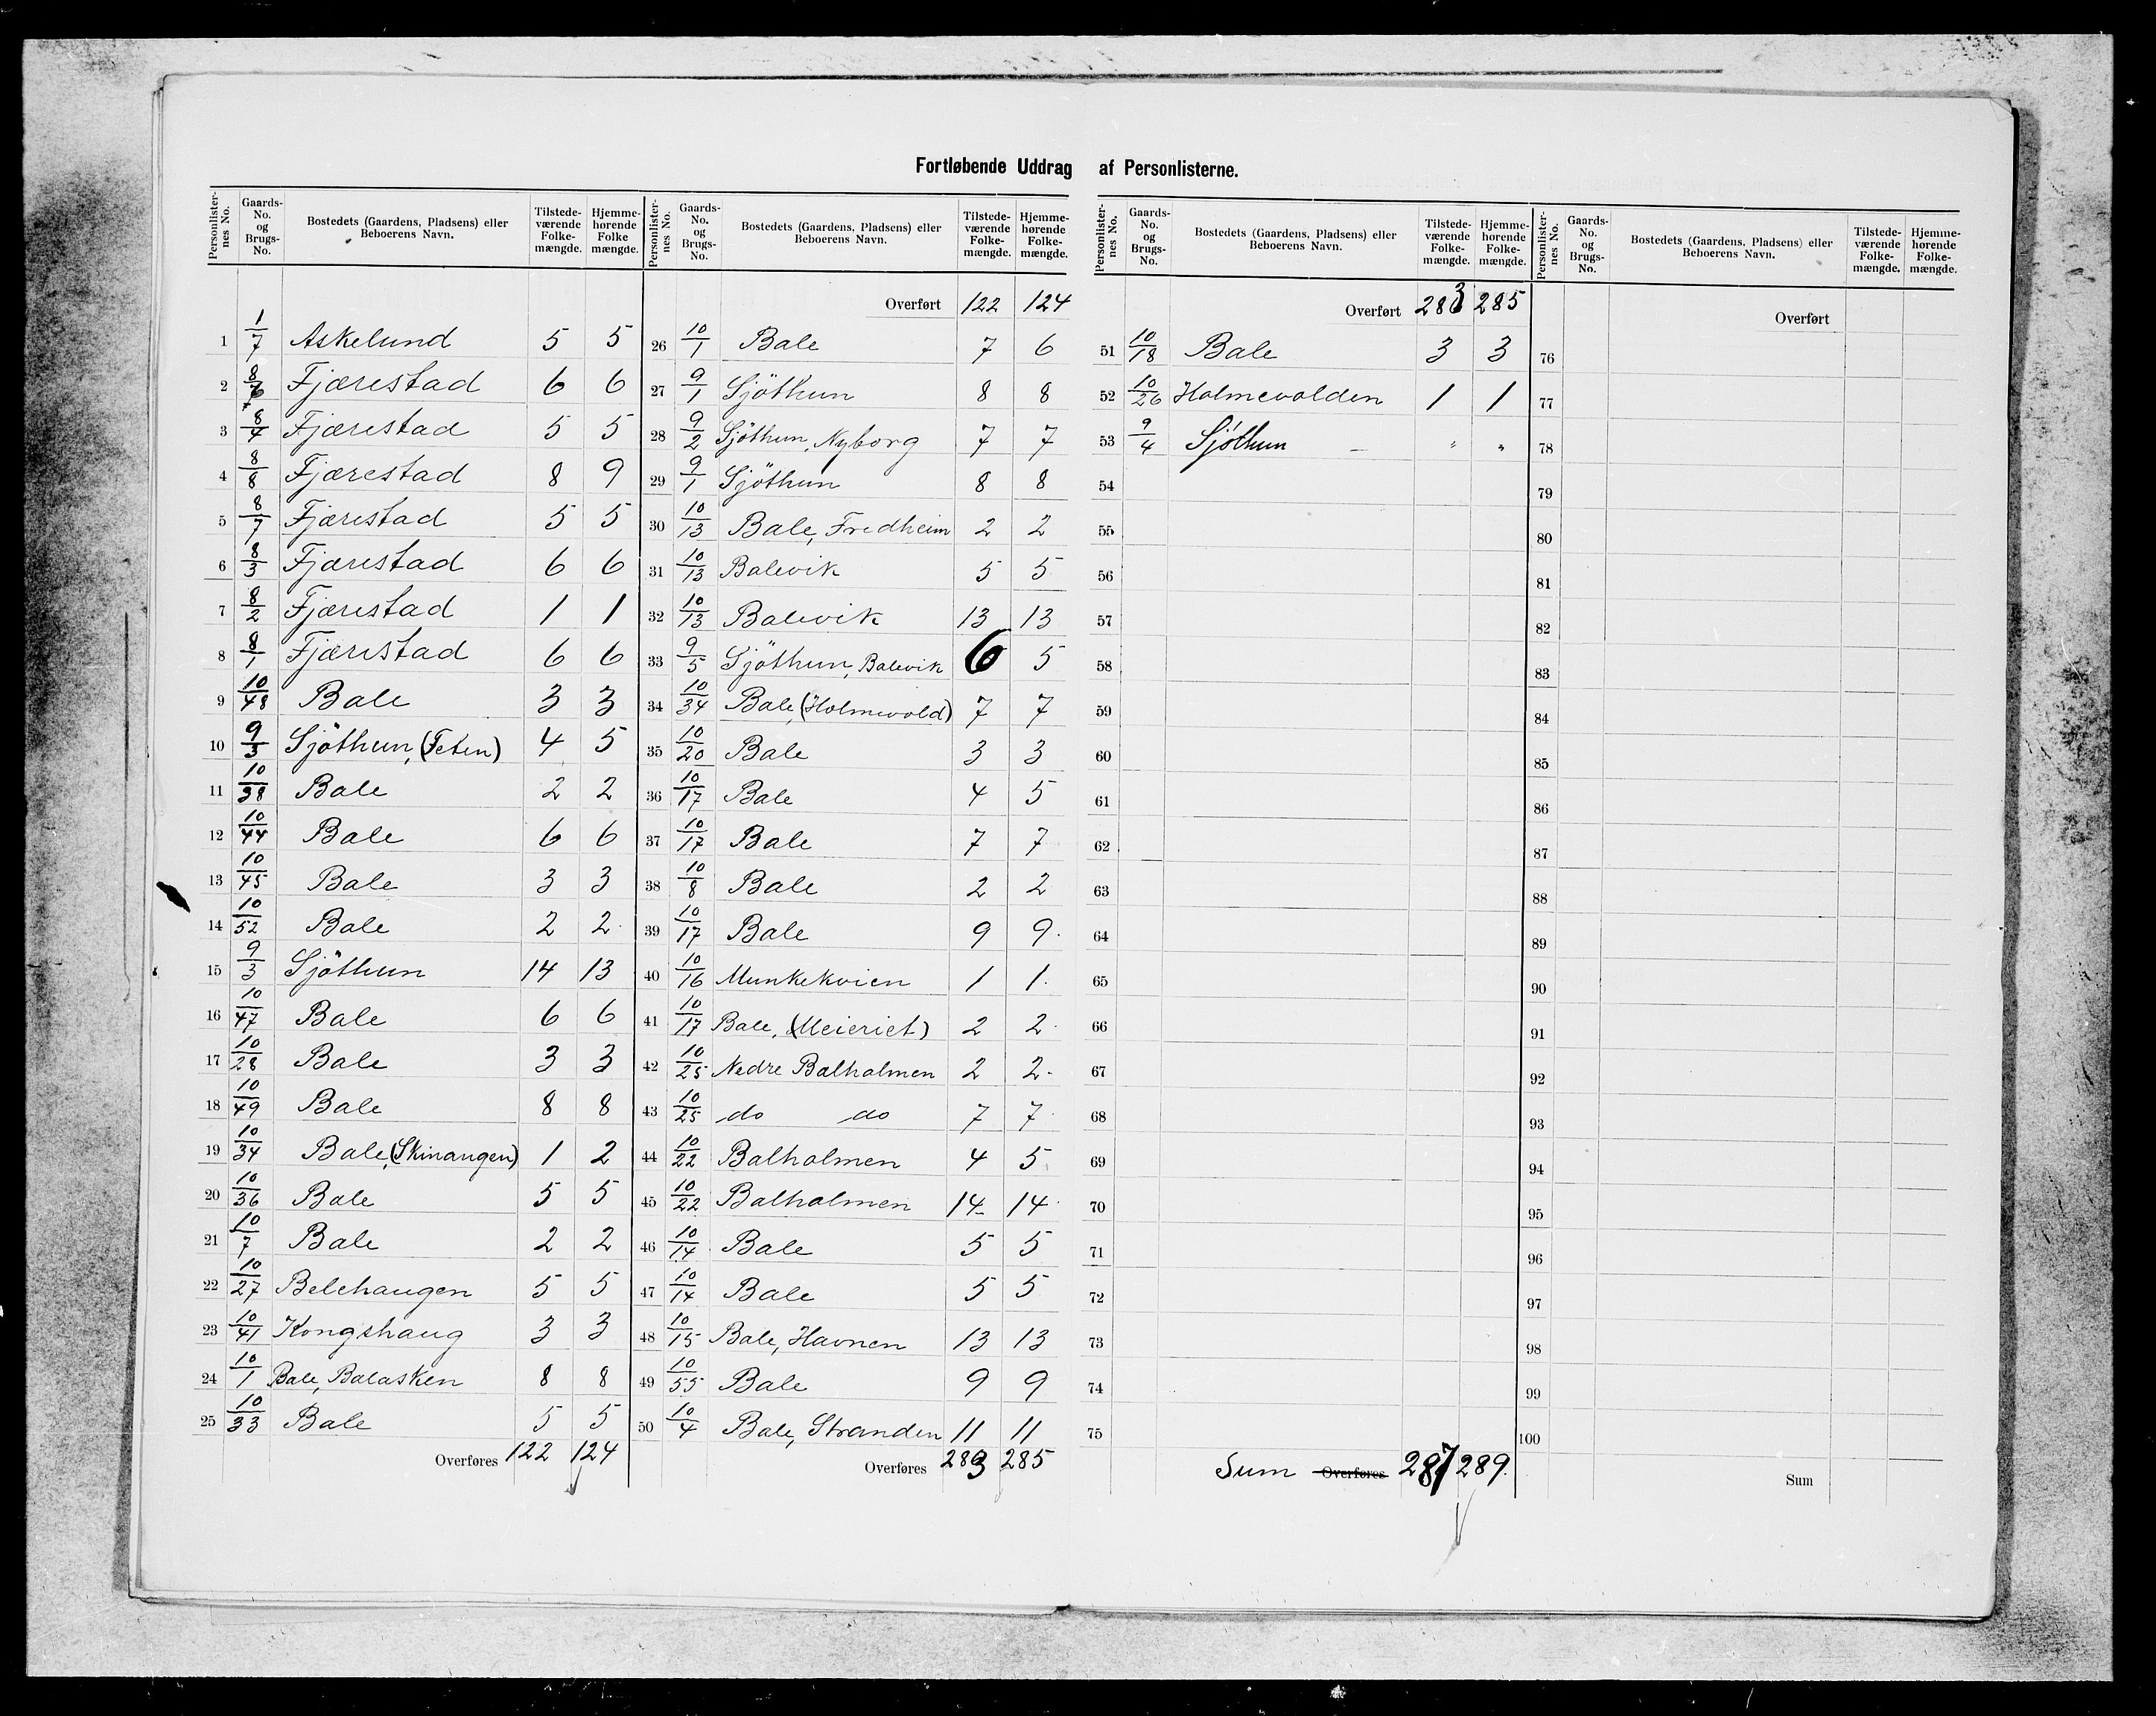 Fortløbende Uddrag af Personlisterne.
Personlister-nes No. | Gaards-No. og Brugs-No. | Bostedets (Gaardens, Pladsens) eller Beboerens Navn. | Tilstede-værende Folke-mængde. | Hjemme-hørende Folke mængde.
1 | 1/7 | Askelund | 5 | 5
2 | 8/6 | Fjærestad | 6 | 6
3 | 8/4 | Fjærestad | 5 | 5
4 | 8/8 | Fjærestad | 8 | 9
5 | 8/7 | Fjærestad | 5 | 5
6 | 8/3 | Fjærestad | 6 | 6
7 | 8/2 | Fjærestad | 1 | 1
8 | 8/1 | Fjærestad | 6 | 6
9 | 10/48 | Bale | 3 | 3
10 | 9/3 | Sjöthun, (Feten) | 4 | 5
11 | 10/38 | Bale | 2 | 2
12 | 10/44 | Bale | 6 | 6
13 | 10/45 | Bale | 3 | 3
14 | 10/52 | Bale | 2 | 2
15 | 9/3 | Sjöthun | 14 | 13
16 | 10/47 | Bale | 6 | 6
17 | 10/28 | Bale | 3 | 3
18 | 10/49 | Bale | 8 | 8
19 | 10/34 | Bale, (Skinangen) | 1 | 2
20 | 10/36 | Bale | 5 | 5
21 | 10/7 | Bale | 2 | 2
22 | 10/27 | Belehaugen | 5 | 5
23 | 10/41 | Kongshaug | 3 | 3
24 | 10/1 | Bale, Balasken | 8 | 8
25 | 10/33 | Bale | 5 | 5
Overføres 122 | 124
Personlister-nes No. | Gaards-No. og Brugs-No. | Bostedets (Gaardens, Pladsens) eller Beboerens Navn. | Tilstede-værende Folke-mængde. | Hjemme-hørende Folke-mængde.
Overført 122 | 124
26 | 10/1 | Bale | 7 | 6
27 | 9/1 | Sjöthun | 8 | 8
28 | 9/2 | Sjöthun, Nyborg | 7 | 7
29 | 9/1 | Sjöthun | 8 | 8
30 | 10/13 | Bale, Fredheim | 2 | 2
31 | 10/13 | Balevik | 5 | 5
32 | 10/13 | Balevik | 13 | 13
33 | 9/5 | Sjöthun, Balevik | 6 | 5
34 | 10/34 | Bale, (Holmevold) | 7 | 7
35 | 10/20 | Bale | 3 | 3
36 | 10/17 | Bale | 4 | 5
37 | 10/17 | Bale | 7 | 7
38 | 10/8 | Bale | 2 | 2
39 | 10/17 | Bale | 9 | 9.
40 | 10/16 | Munkekvien | 1 | 1.
41 | 10/17 | Bale, (Meieriet) | 2 | 2.
42 | 10/25 | Nedre Balholmen | 2 | 2.
43 | 10/25 | do do | 7 | 7.
44 | 10/22 | Balholmen | 4 | 5
45 | 10/22 | Balholmen | 14 | 14
46 | 10/14 | Bale | 5 | 5
47 | 10/14 | Bale | 5 | 5
48 | 10/15 | Bale, Havnen | 13 | 13
49 | 10/55 | Bale | 9 | 9
50 | 10/4 | Bale, Stranden | 11 | 11
Overføres 283 | 285
Personlister-nes No. | Gaards-No. og Brugs-No. | Bostedets (Gaardens, Pladsens) eller Beboerens Navn. | Tilstede-værende Folke-mængde. | Hjemme-hørende Folke-mængde.
Overført 283 | 285
51 | 10/18 | Bale | 3 | 3
52 | 10/26 | Holmevolden | 1 | 1
53 | 9/4 | Sjöthun – | " | "
54
55
56
57
58
59
60
61
62
63
64
65
66
67
68
69
70
71
72
73
74
75
Sum Overføres 287 | 289.
Personlister-nes No. | Gaards-No. og Brugs-No. | Bostedets (Gaardens, Pladsens) eller Beboerens Navn. | Tilstede-værende Folke-mængde. | Hjemme-hørende Folke-mængde.
Overført
76
77
78
79
80
81
82
83
84
85
86
87
88
89
90
91
92
93
94
95
96
97
98
99
100
Sum